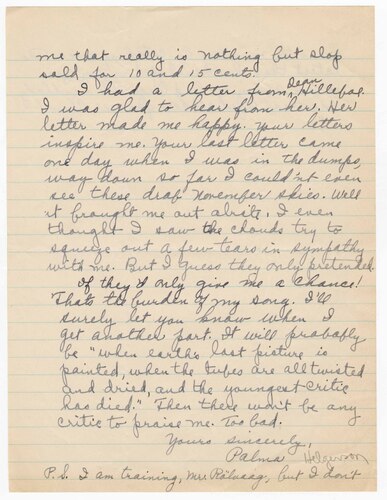 me that really is nothing but slop
sold for 10 and 15 cents.
I had a letter from Dean Hillebo.
I was glad to hear from her. Her
letter made me happy. Your letters
inspire me. Your last letter came
one day when I was in the dumps,
way down so far I could'nt even
see these drab November skies. Well
it brought me out alrite, I even
thought I saw the clouds try to
squeeze out a few tears in sympathy
with me. But I guess they only pretended.
If they'd only give me a chance!
Thats the burden of my song. I'll
surely let you know when I
get another part. It will probably
be "when earths last picture is
painted, when the tubes are all twisted
and dried, and the youngest critic
has died." Then there won't be any
critic to praise me. Too bad.
Yours sincerely,
Palma Helgerson
P.S. I am training, Mr. Rölvaag, but I don't